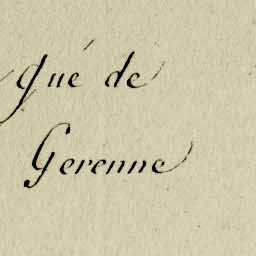 Gué de
Gerenne